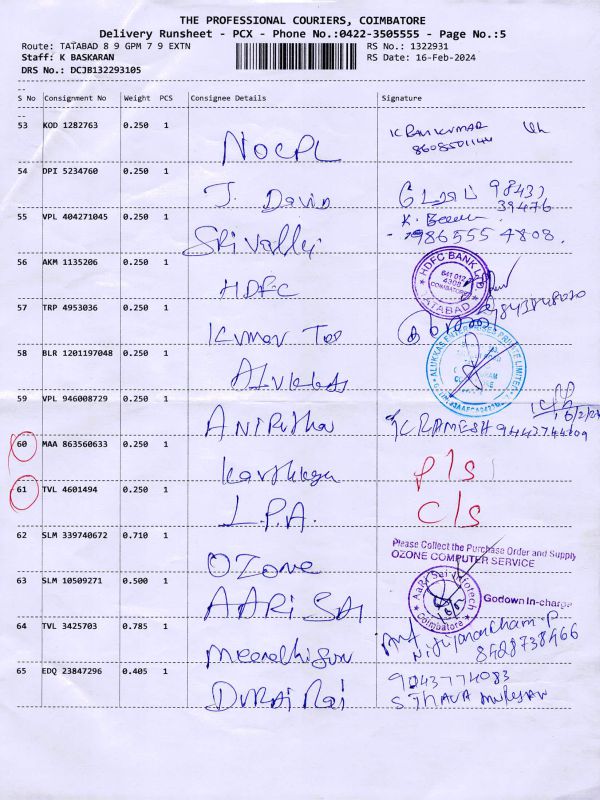 THE PROFESSIONAL COURIERS, COIMBATORE
Delivery Runsheet - PCX - Phone No.:0422-3505555 - Page No.:5
Route: TATABAD 8 9 GPM 7 9 EXTN RS No.: 1322931
Staff: K BASKARAN RS Date: 16-Feb-2024
DRS No.: DCJB132293105
--
S No Consignment No Weight PCS Consignee Details Signature
--
53 KOD 1282763 0.250 1 NOCPL K RAMKUMAR
8608501144
54 DPI 5234760 0.250 1 J. David 98437
39476
55 VPL 404271045 0.250 1 Sri Valley K.
986555 4808.
56 AKM 1135206 0.250 1 HDFC HDFC BANK LTD
641 012
4308
COIMBATORE
TATABAD
57 TRP 4953036 0.250 1 Kumar
58 BLR 1201197048 0.250 1 ALUKKAS ENTERPRISES PRIVATE LIMITED
59 VPL 946008729 0.250 1 16/2/24
K RAMESH 9442744209
60 MAA 863560633 0.250 1 Karthikeya P/s
61 TVL 4601494 0.250 1 L.P.A. C/s
62 SLM 339740672 0.710 1 OZone Please Collect the Purchase Order and Supply
OZONE COMPUTER SERVICE
63 SLM 10509271 0.500 1 AARI SAI Aari Sai Infotech
Coimbatore
Godown In-charge
64 TVL 3425703 0.785 1 Nithyanantham.P
8428738466
65 EDQ 23847296 0.405 1 DURAI Raj 9043774083